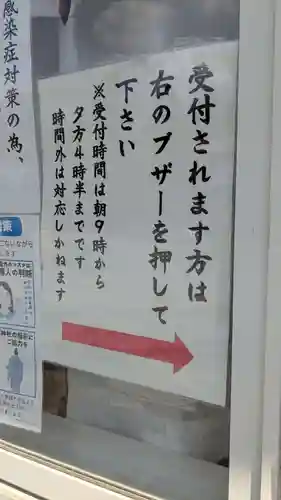 受付されます方は
右のブザーを押して
下さい
※受付時間は朝9時から
夕方4時半までです
時間外は対応しかねます
感染症対策の為、